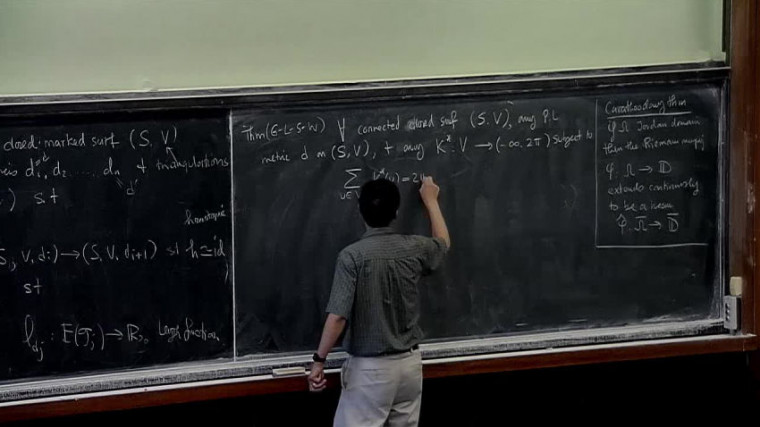 closed marked surf (S, V)
d₁, d₂ ..... dₙ + triangulations
d'
) s.t
homotopic
S, V, dᵢ) → (S, V, dᵢ₊₁) st h ≃ id
st
: E(Tⱼ) → ℝ>₀ length function.
Thm (G-L-S-W) ∀ connected closed surf (S, V), any P.L
metric d on (S, V), + any K*: V → (-∞, 2π) subject to
∑ K*(v) = 2π
Caratheodory thm
φ. Ω Jordan domain
then the Riemann mapping
φ. Ω → 𝔻
extends continuously
to be a homeo
φ̂. Ω̄ → 𝔻̄